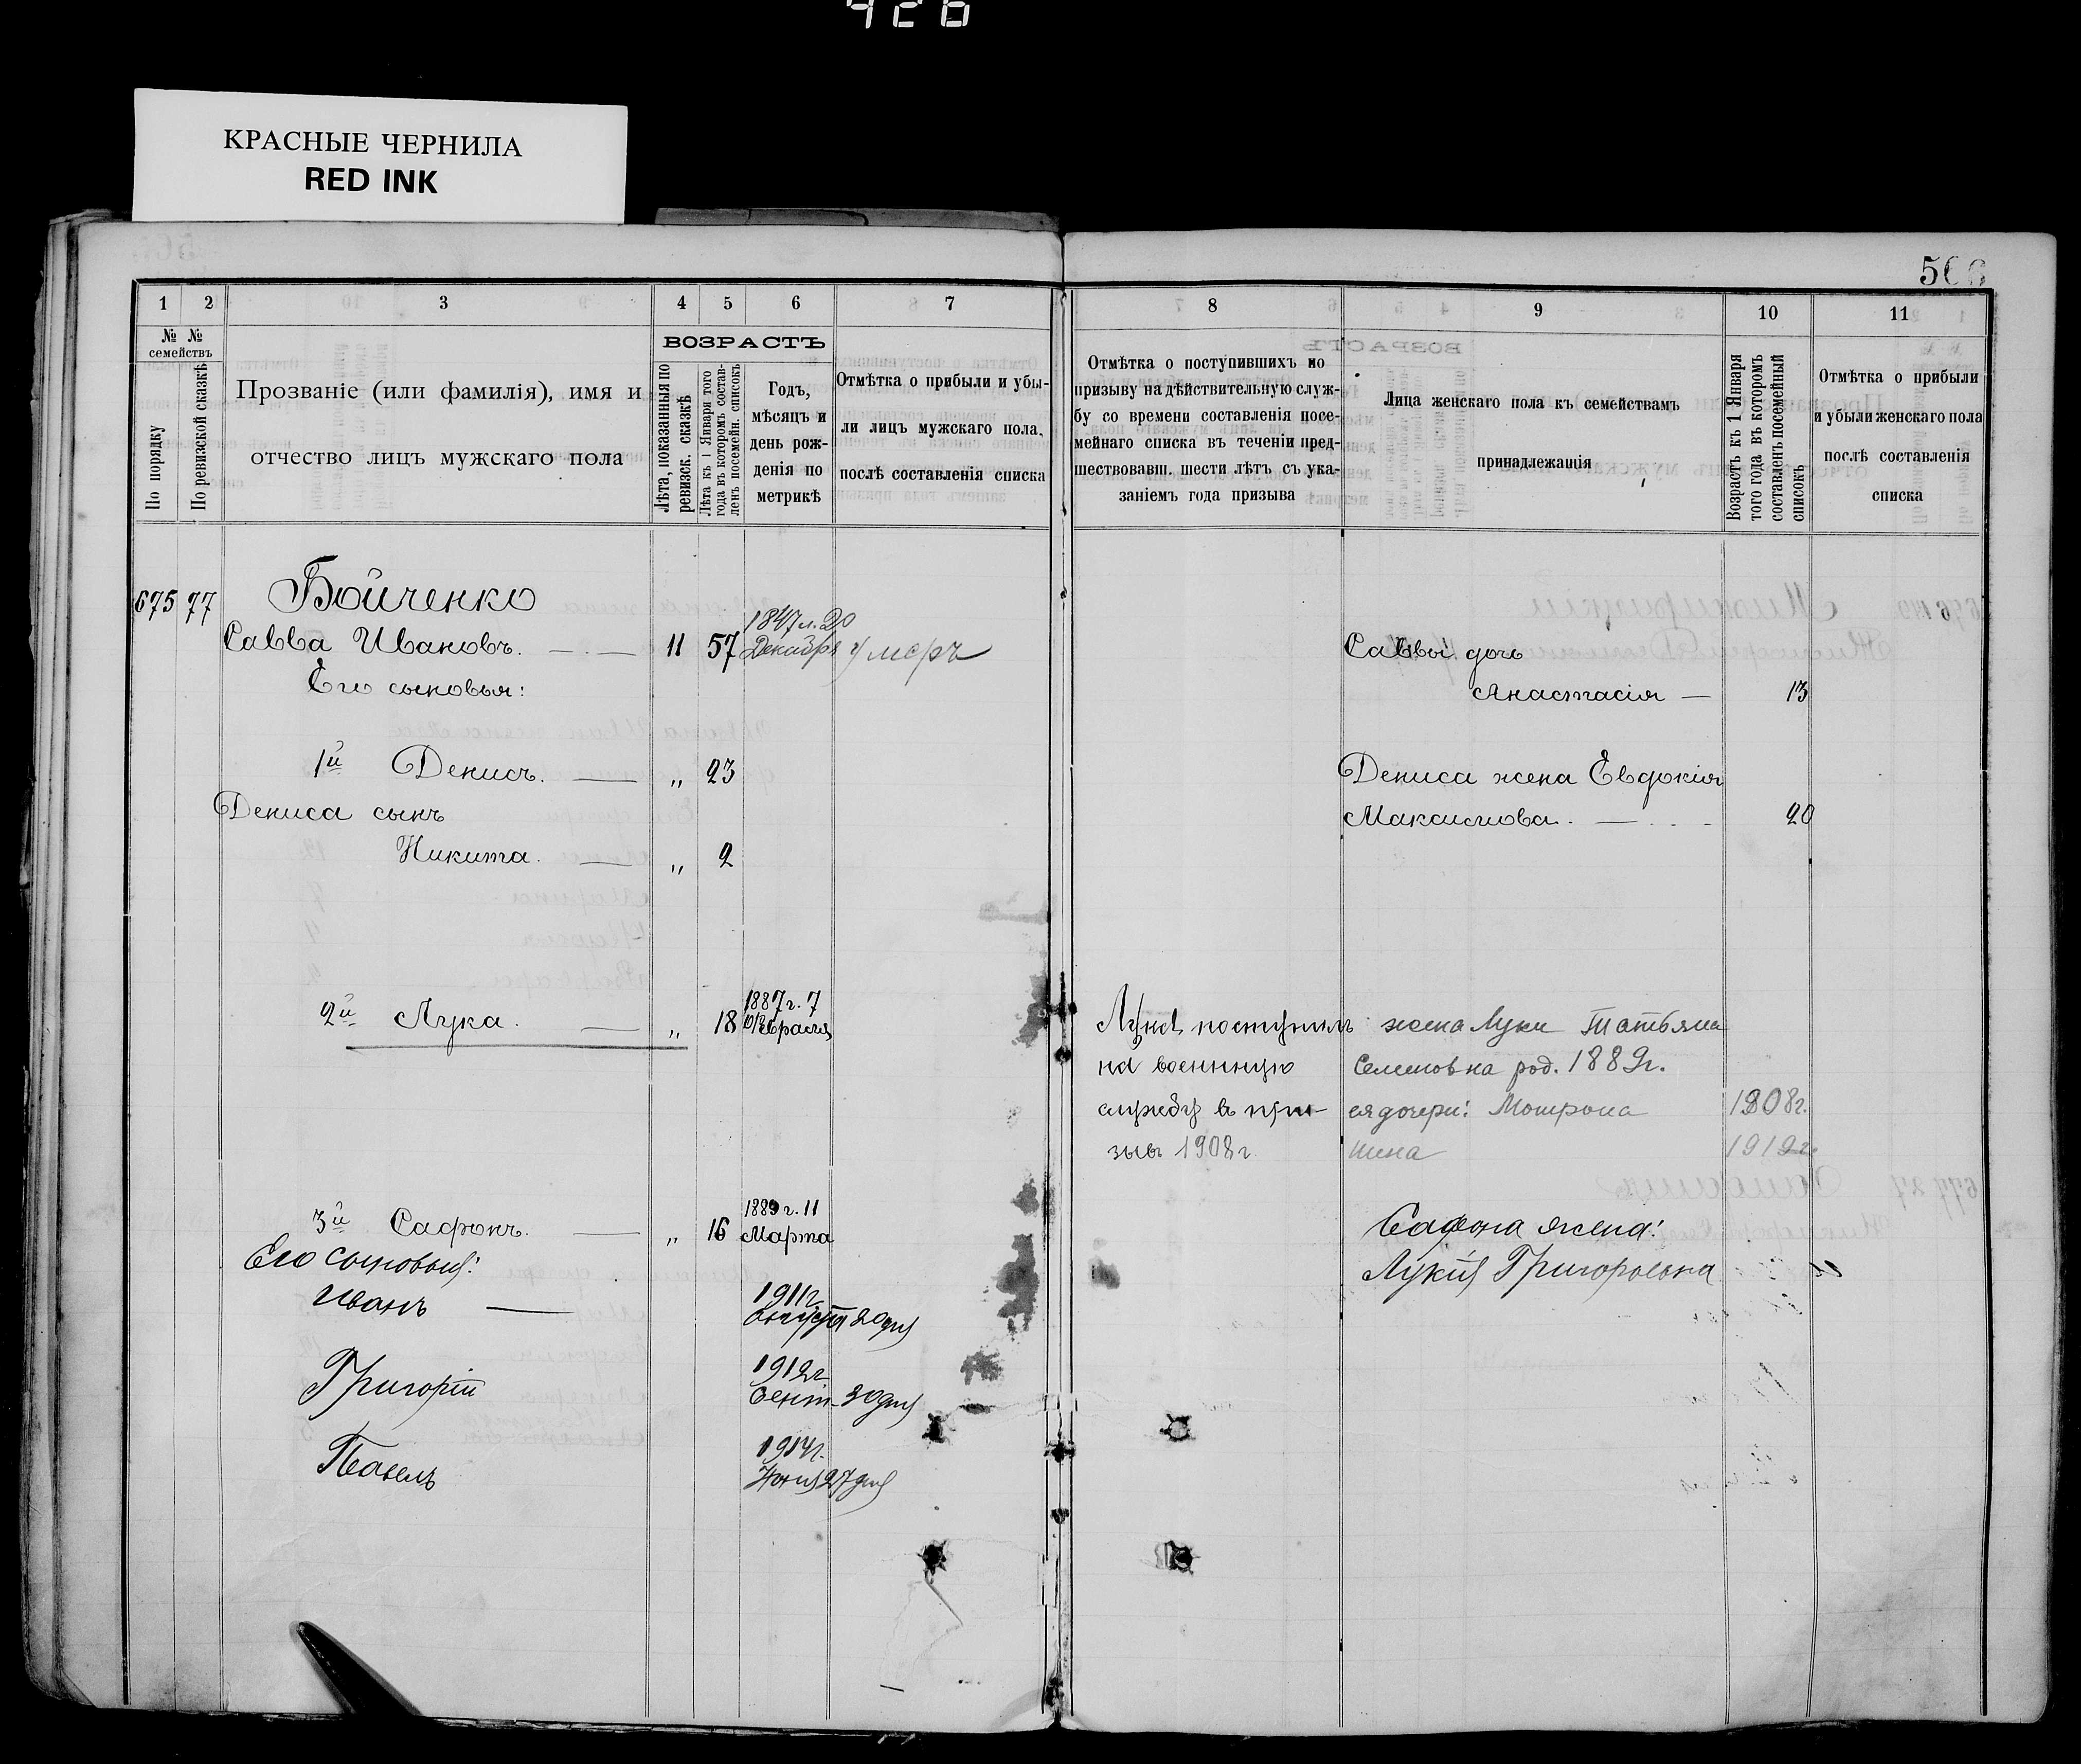 426
КРАСНЫЕ ЧЕРНИЛА
RED INK
566
1 2 3 4 5 6 7 8 9 10 11
№ № семействъ
По порядку
По ревизской сказкѣ
Прозваніе (или фамилія), имя и
отчество лицъ мужскаго пола
ВОЗРАСТЪ
Лѣта, показанныя по
ревизск. сказкѣ
Лѣта къ 1 Января того
года въ которомъ состав-
ленъ посемейн. списокъ
Годъ,
мѣсяцъ и
день рож-
денія по
метрикѣ
Отмѣтка о прибыли и убы-
ли лицъ мужскаго пола,
послѣ составленія списка
Отмѣтка о поступившихъ по
призыву на дѣйствительную служ-
бу со времени составленія посе-
мейнаго списка въ теченіи пред-
шествовавш. шести лѣтъ съ ука-
заніемъ года призыва
Лица женскаго пола къ семействамъ
принадлежащія
Возрастъ къ 1 Января
того года въ которомъ
составленъ посемейный
списокъ
Отмѣтка о прибыли
и убыли женскаго пола
послѣ составленія
списка
675 77 Бойченко
Савва Ивановъ. 11 57 1847 г. 20 Декабря умеръ
Его сыновья:
1й Денисъ. „ 23
Дениса сынъ
Никита. „ 2
2й Лука. „ 18 1887 г. 7 Февраля
3й Сафонъ. „ 16 1889 г. 11 Марта
Его сыновья:
Иванъ 1911 г. августа 20 дня
Григорій 1912 г. Сент. 30 дня
Павелъ 1914 г. 27 дня
Лука поступилъ
на военную
службу въ при-
зывъ 1908 г.
Саввы дочь
Анастасія — 13
Дениса жена Евдокія
Максимова. 20
жена Луки Татьяна
Семеновна род. 1889 г.
ея дочери: Мотрона 1908 г.
1912 г.
Сафона жена:
Лукія Григоровна